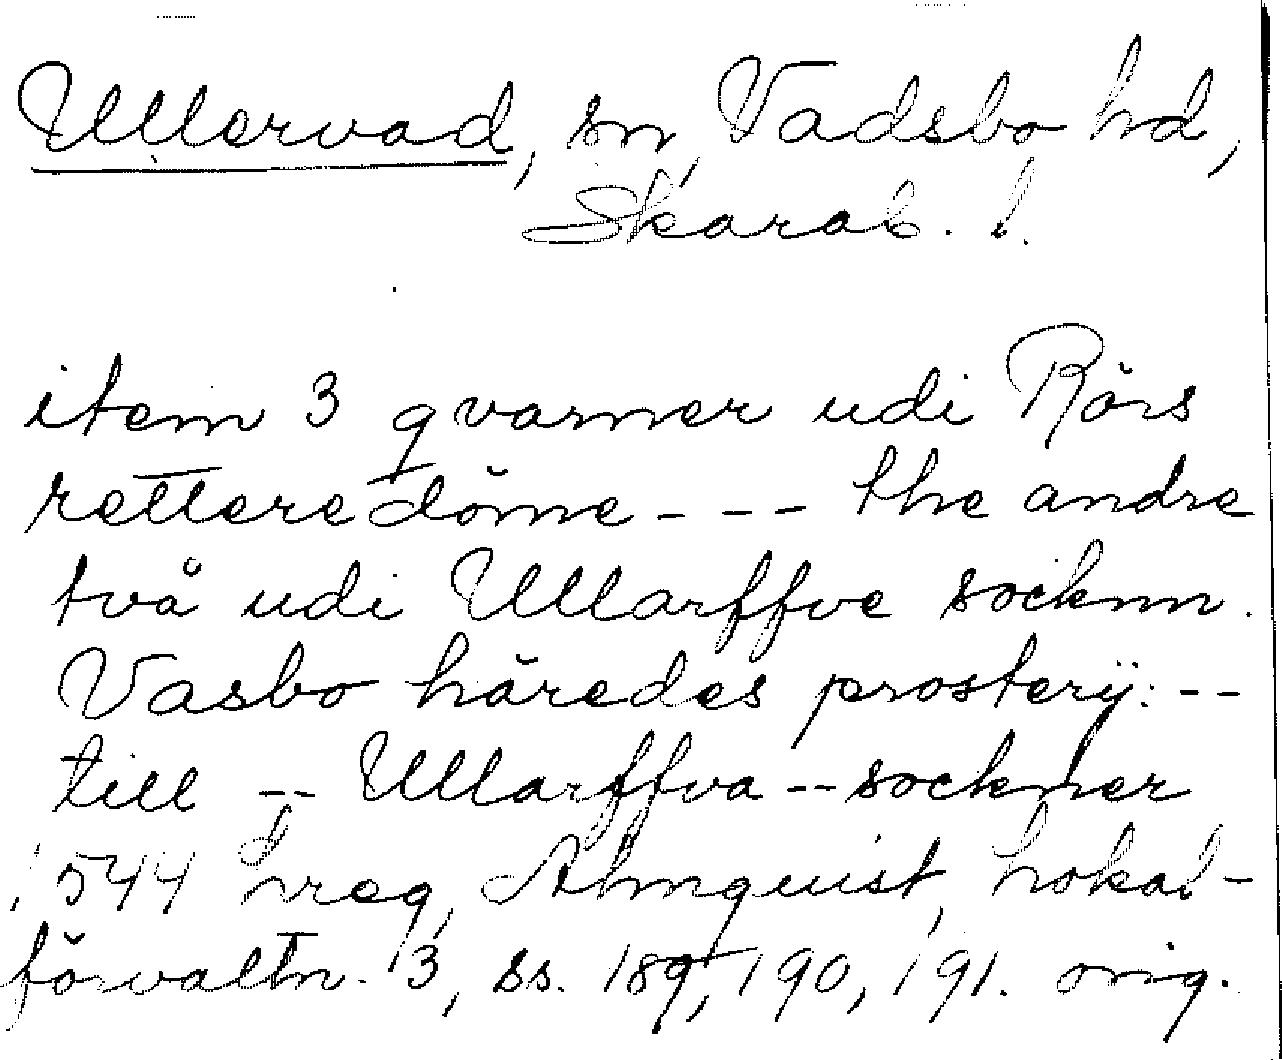 Ullervad, sn, Vadsbo hd,
Skarab. l.
item 3 qvarner udi Rörs
rettere döme - - - the andre
två udi Ullarffve socknn.
Vasbo häredes prosterij: --
till -- Ullarffva -- sockner
1544 hreg, Almquist, Lokal-
förvaltn. 3, ss. 189, 190, 191. orig.